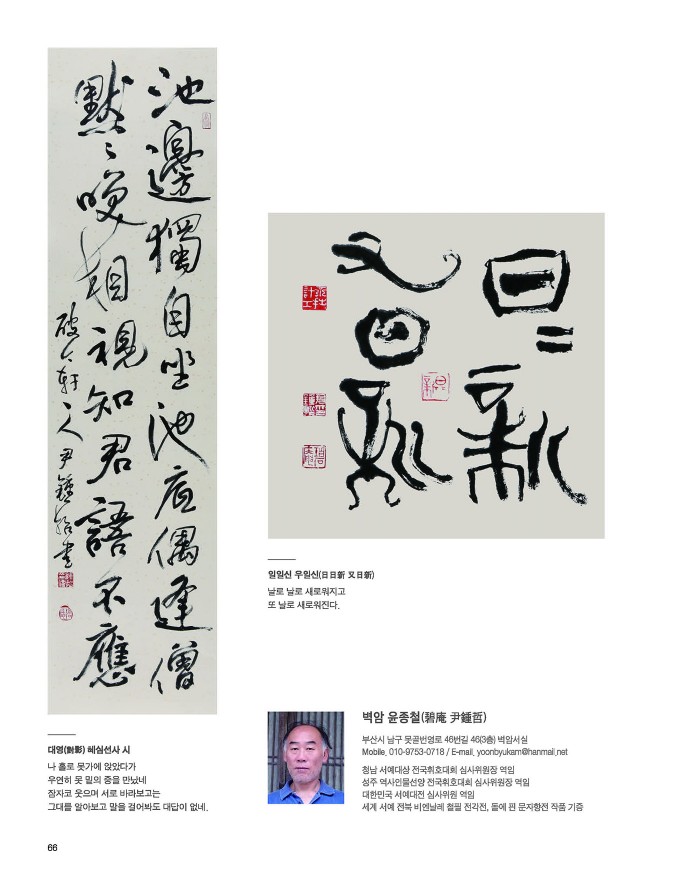 池邊獨自坐池底偶逢僧
默〻咲相視知君語不應
日〻新
又日新
일일신 우일신(日日新 又日新)
날로 날로 새로워지고
또 날로 새로워진다.
대영(對影) 혜심선사 시
나 홀로 못가에 앉았다가
우연히 못 밑의 중을 만났네
잠자코 웃으며 서로 바라보고는
그대를 알아보고 말을 걸어봐도 대답이 없네.
벽암 윤종철(碧庵 尹鍾哲)
부산시 남구 못골번영로 46번길 46(3층) 벽암서실
Mobile. 010-9753-0718 / E-mail. yoonbyukam@hanmail.net
청남 서예대상 전국휘호대회 심사위원장 역임
성주 역사인물선양 전국휘호대회 심사위원장 역임
대한민국 서예대전 심사위원 역임
세계 서예 전북 비엔날레 철필 전각전, 돌에 핀 문자향전 작품 기증
66